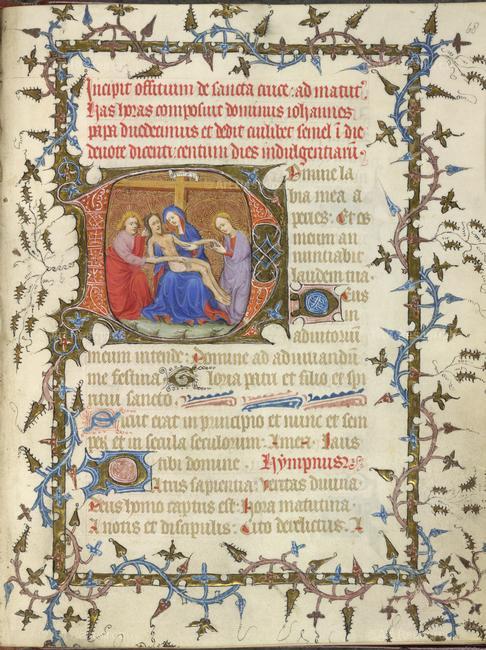 68
Incipit offitium de sancta cruce: ad matut'.
Has horas composuit dominus iohannes
papa duedecimus et dedit cuilibet semel ī die
deuote dicenti: centum dies indulgentiarū.
Domine la
bia mea a
peries: Et os
meum an
nuntiabit
laudem tua.
Deus
in
adiutoriū
meum intende: Domine ad adiuuandū
me festina. Gloria patri et filio et spi
ritui sancto
Sicut erat in principio et nunc et sem
per et in secula seculorum. Amen. Laus
tibi domine. Hympnus
Patris sapientia: veritas diuina
Deus homo captus est. Hora matutina.
A notis et discipulis: Cito derelictus. A